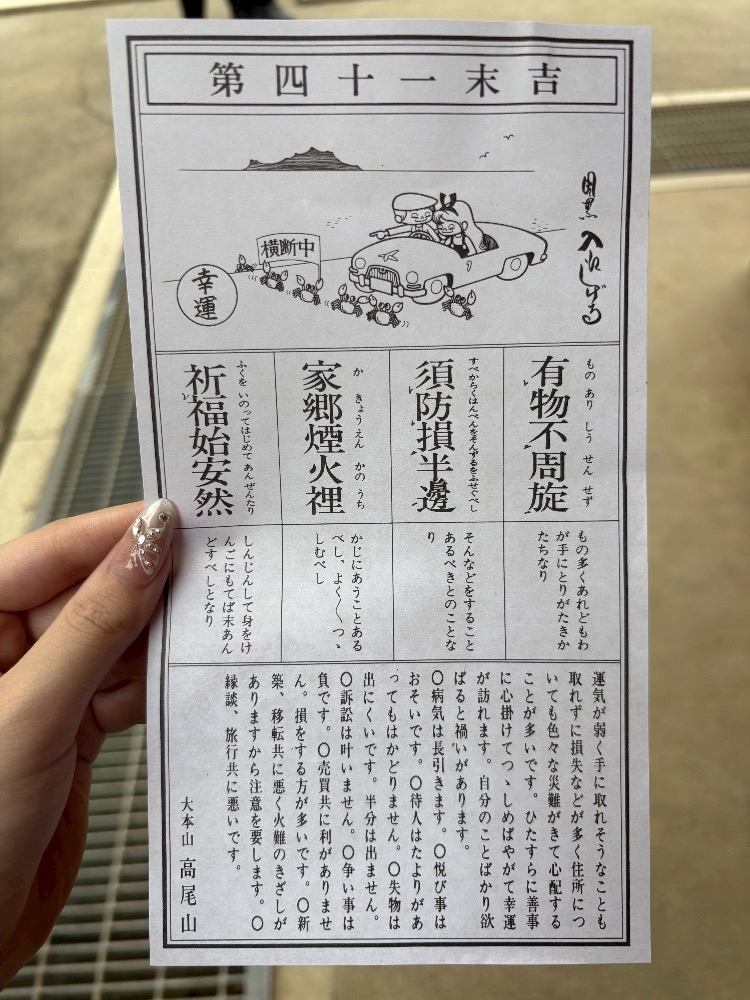 第四十一末吉
横断中
幸運
もの あり しう せん せず
有物不周旋
すべからくはんぺんをそんずるをふせぐべし
須防損半邊
か きょうえん かの うち
家郷煙火裡
ふくを いのってはじめて あんぜんたり
祈福始安然
もの多くあれどもわ
が手にとりがたきか
たちなり
そんなどをすること
あるべきとのことな
り
かじにあうことある
べし、よく〱つゝ
しむべし
しんじんして身をけ
んごにもてば末あん
どすべしとなり
運気が弱く手に取れそうなことも
取れずに損失などが多く住所につ
いても色々な災難がきて心配する
ことが多いです。ひたすらに善事
に心掛けてつゝしめばやがて幸運
が訪れます。自分のことばかり欲
ばると禍いがあります。
〇病気は長引きます。〇悦び事は
おそいです。〇待人はたよりがあ
ってもはかどりません。〇失物は
出にくいです。半分は出ません。
〇訴訟は叶いません。〇争い事は
負です。〇売買共に利がありませ
ん。損をする方が多いです。〇新
築、移転共に悪く火難のきざしが
ありますから注意を要します。〇
縁談、旅行共に悪いです。
大本山 高尾山